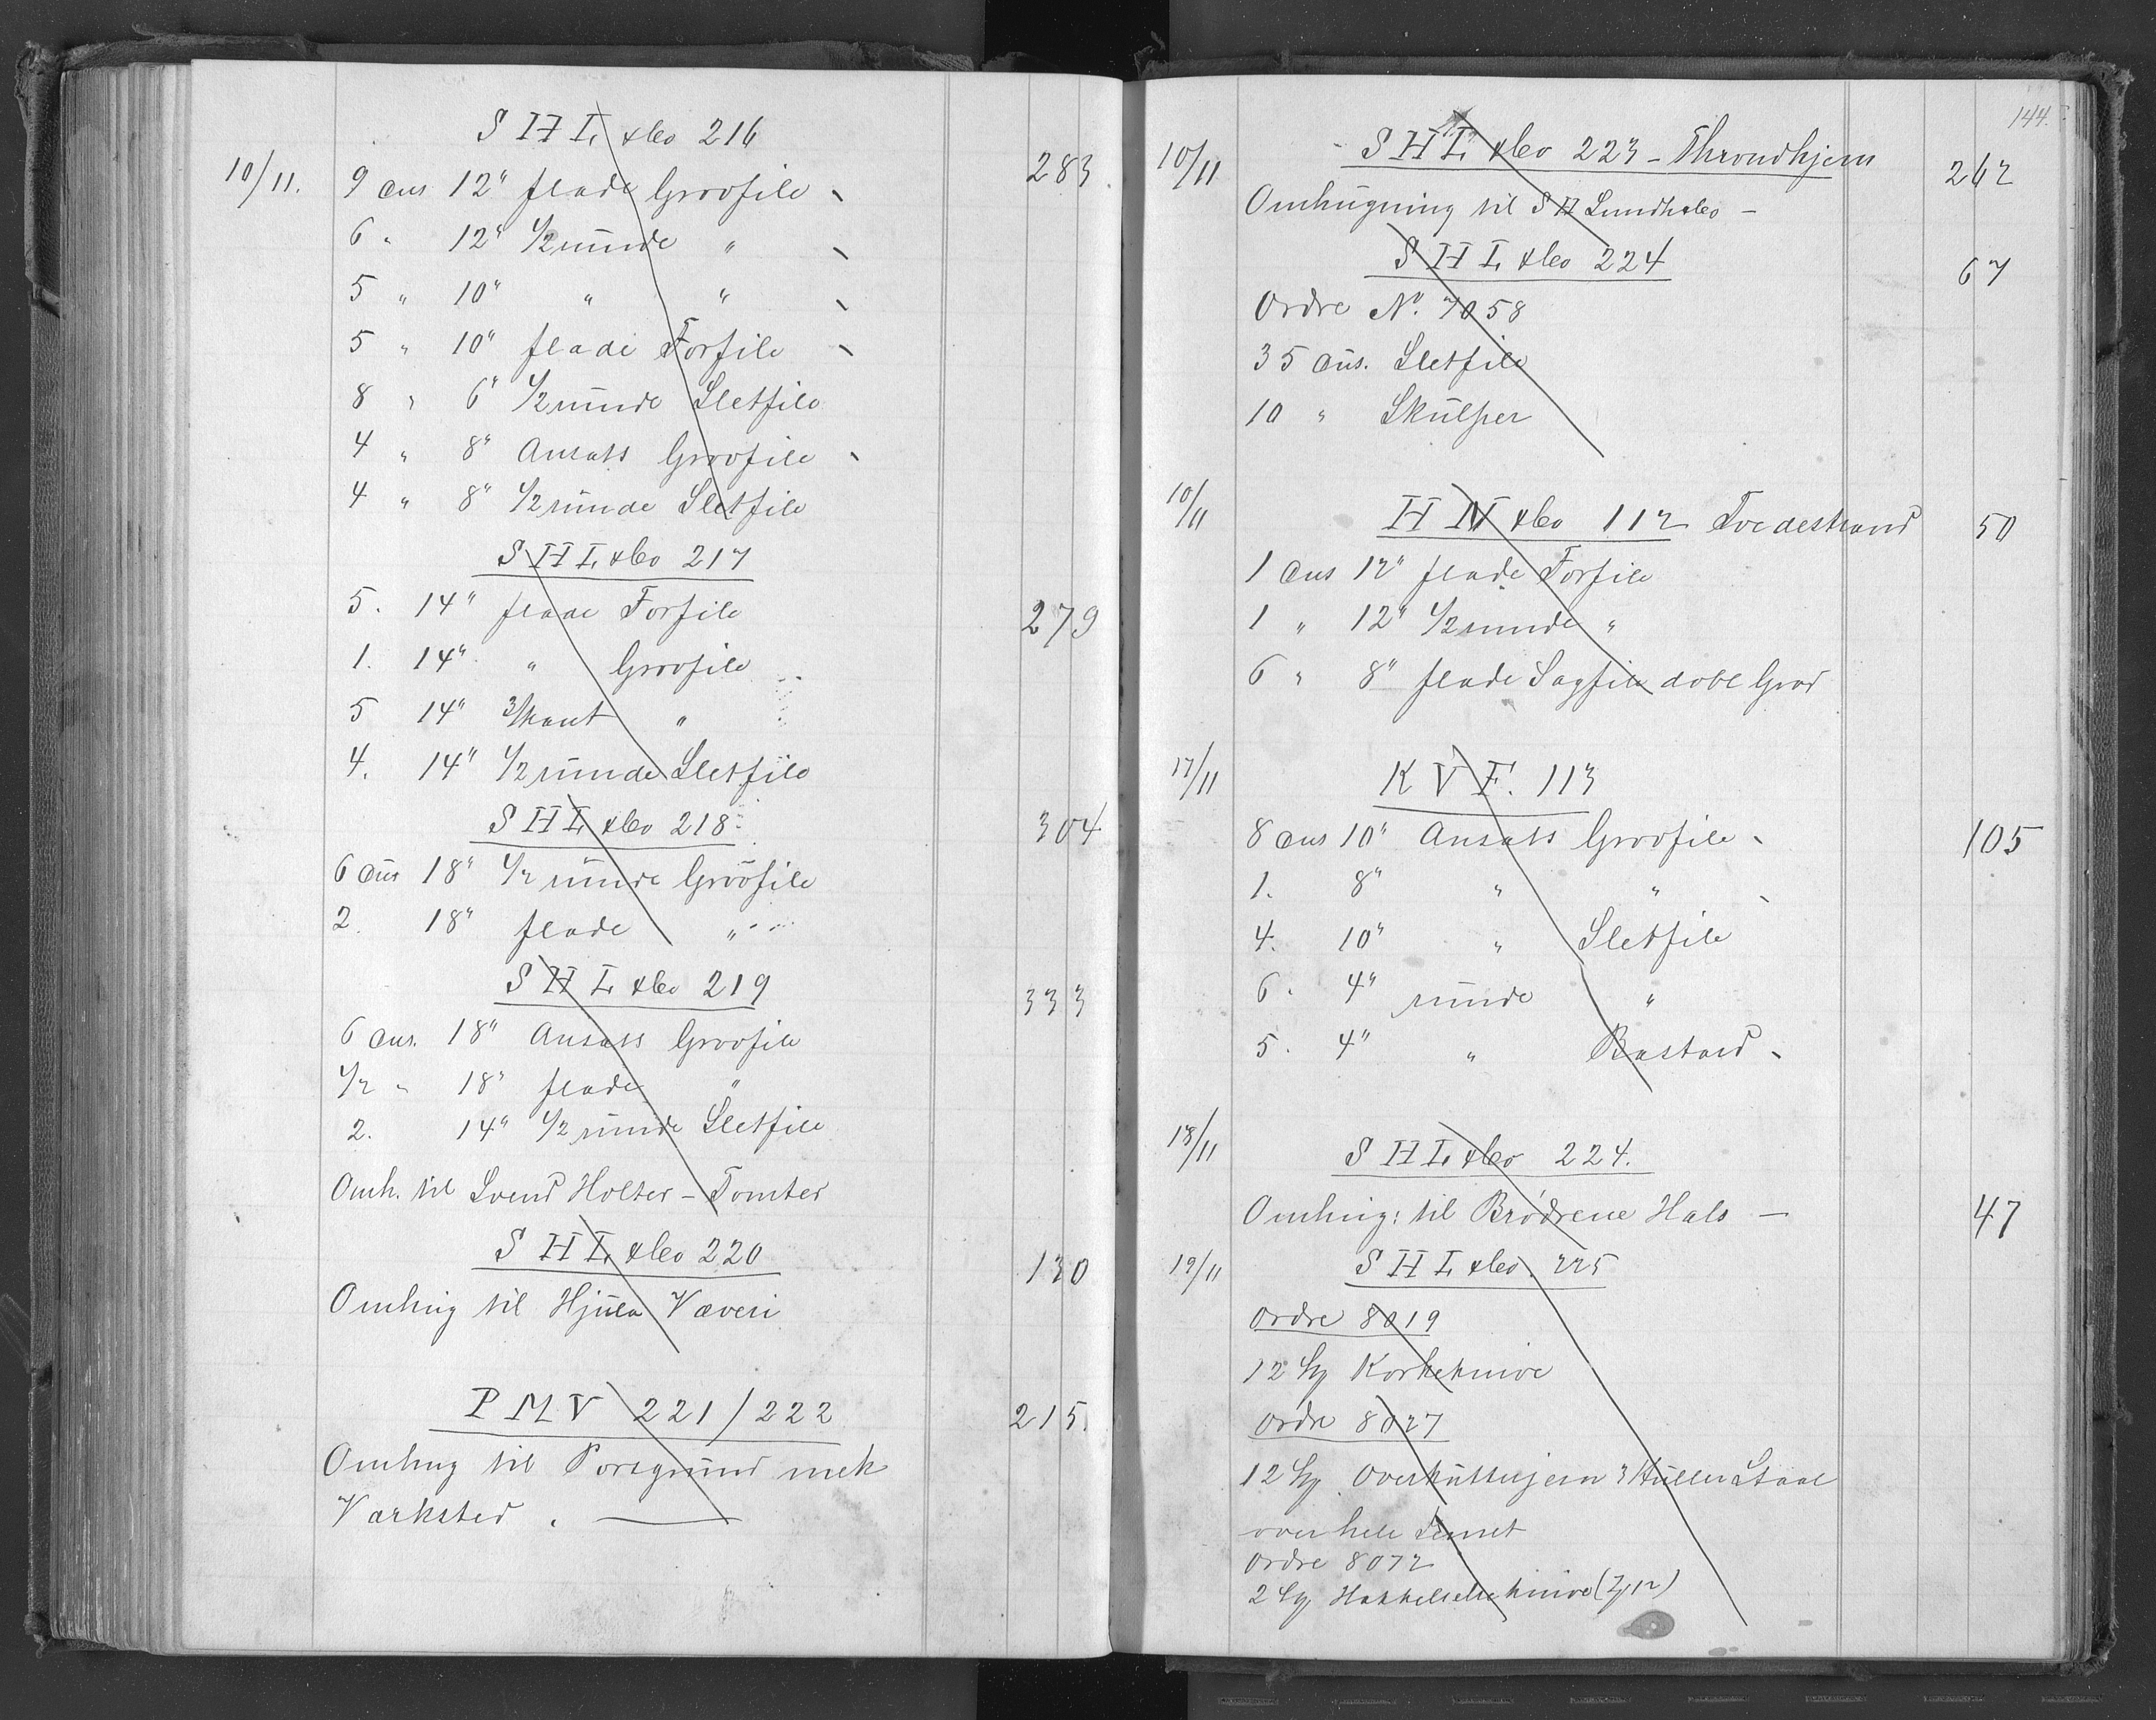 S H L & Co 216
10/11. 9 dus 12" flade Grovfile 283
6 " 12" 1/2 runde "
5 " 10" " "
5 " 10" flade Forfile
8 " 6" 1/2 runde Sletfile
4 " 8" Ansats Grovfile
4 " 8" 1/2 runde Sletfile
S H L & Co 217
5. 14" flade Forfile 279
1. 14" " Grovfile
5 14" 3/kant "
4. 14" 1/2 runde Sletfile
S H L & Co 218 304
6 dus 18" 1/2 runde Grovfile
2. 18" flade "
S H L & Co 219 333
6 dus. 18" Ansats Grovfile
1/2 " 18" flade "
2. 14" 1/2 runde Sletfile
Omh. til Svend Holter - Tomter
S H L & Co 220 130
Omhug til Hjula Væveri
P M V 221/222 215.
Omhug til Porsgrund mek
Værksted . —
144.
10/11 S H L & Co 223 - Throndhjem 262
Omhugning til S H Lundh & Co -
S H L & Co 224 67
Ordre No. 7058
35 dus. Sletfile
10 " Skulper
10/11 H N & Co 112 Tvedestrand 50
1 dus 12" flade Forfile
1 " 12" 1/2 runde "
6 " 8" flade Sagfile dobl Grad
17/11 K V F. 113
8 dus 10" Ansats Grovfile 105
1. 8" " "
4. 10" " Sletfile
6. 4" runde "
5. 4" " Bastard
18/11 S H L & Co 224.
Omhug: til Brødrene Hals — 47
19/11 S H L & Co. 225
Ordre 8019
12 Knive
Ordre 8027
12 3 Huller Staal
over hele
Ordre 8072
2 Hakkelseknive